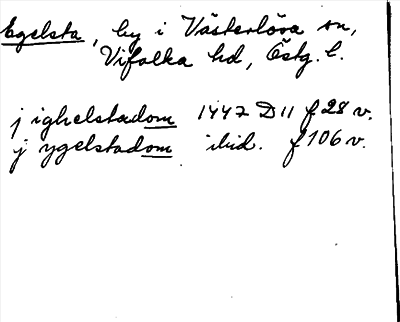 Egelsta, by i Västerlösa sn,
Vifolka hd, Östg. l.
j ighelstadom 1447 D 11 f 28 v.
j ygelstadom ibid. f 106 v.